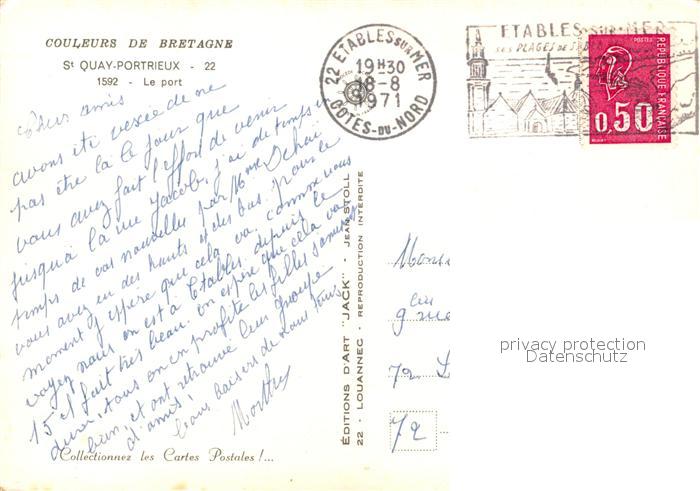 COULEURS DE BRETAGNE
St QUAY-PORTRIEUX - 22
1592 - Le port
Chers amis
avons été vexés de ne
pas être là le jour que
vous avez fait l'effort de venir
jusqu'à la rue Jacob, j'ai de temps en
temps de vos nouvelles par Mme
vous avez eu des hauts et des bas pour le
moment j'espère que cela va. comme vous
voyez nous on est à Etables depuis le
15 il fait très beau. on espère que cela va
durer, tous on en profite les filles s'amusent
bien, et ont retrouvé leur groupe
d'amis.
bons baisers de nous tous
Collectionnez les Cartes Postales !...
22 ETABLES SUR MER
19H30
18-8
1971
COTES-DU-NORD
ETABLES-SUR-MER
SES PLAGES DE
POSTES
REPUBLIQUE FRANÇAISE
0,50
EDITIONS D'ART "JACK" - JEAN STOLL
22 - LOUANNEC - REPRODUCTION INTERDITE
72
privacy protection
Datenschutz